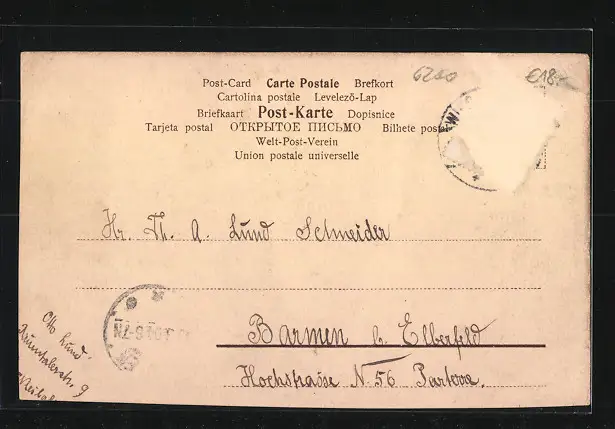 6200 €18
Post-Card Carte Postale Brefkort
Cartolina postale Levelező-Lap
Briefkaart Post-Karte Dopisnice
Tarjeta postal ОТКРЫТОЕ ПИСЬМО Bilhete postal
Welt-Post-Verein
Union postale universelle
Hr. Th. A. Lund Schneider
Barmen b. Elberfeld
Hochstrasse N. 56 Parterre.
Otto Lund.
9